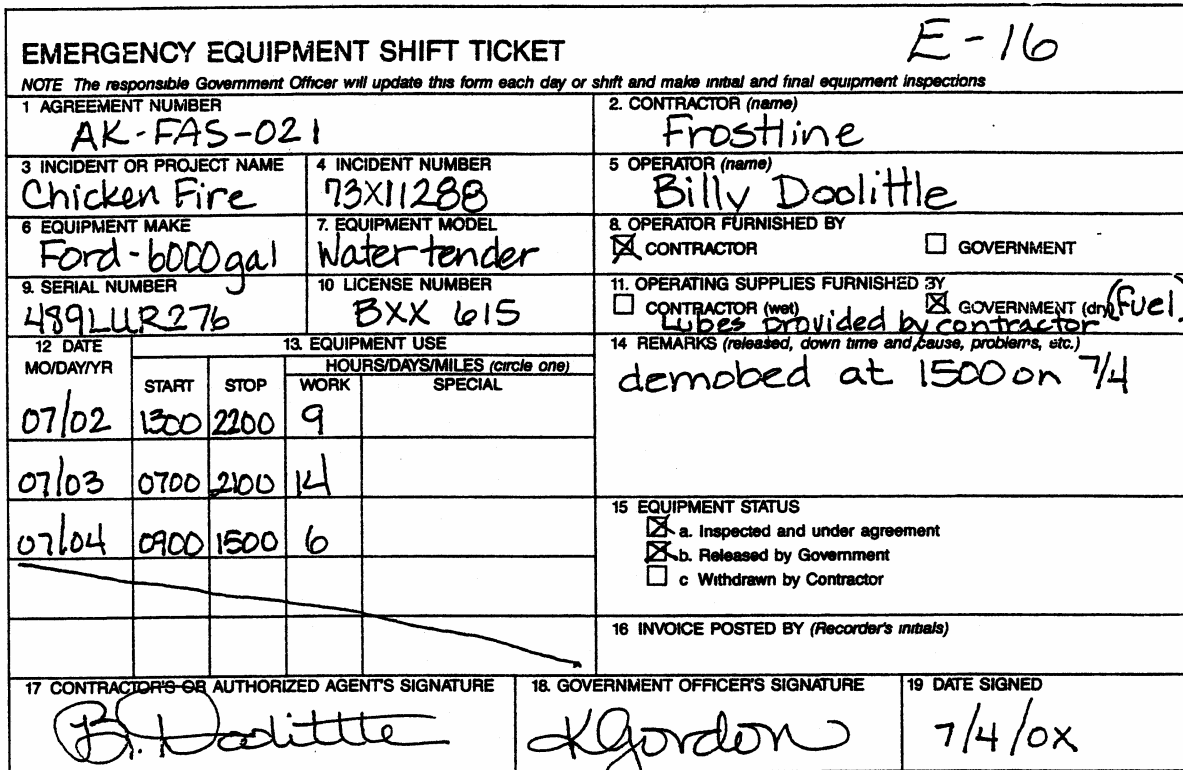 E-16
EMERGENCY EQUIPMENT SHIFT TICKET
NOTE The responsible Government Officer will update this form each day or shift and make initial and final equipment inspections
1 AGREEMENT NUMBER
AK-FAS-021
2. CONTRACTOR (name)
Frostline
3 INCIDENT OR PROJECT NAME
Chicken Fire
4 INCIDENT NUMBER
73X11288
5 OPERATOR (name)
Billy Doolittle
6 EQUIPMENT MAKE
Ford-6000 gal
7. EQUIPMENT MODEL
Water tender
8. OPERATOR FURNISHED BY
CONTRACTOR GOVERNMENT
9. SERIAL NUMBER
489LUR276
10 LICENSE NUMBER
BXX 615
11. OPERATING SUPPLIES FURNISHED BY
CONTRACTOR (wet) GOVERNMENT (dry) (fuel)
Lubes provided by contractor
12 DATE
MO/DAY/YR
13. EQUIPMENT USE
HOURS/DAYS/MILES (circle one)
START STOP WORK SPECIAL
07/02 1300 2200 9
07/03 0700 2100 14
07/04 0900 1500 6
14 REMARKS (released, down time and cause, problems, etc.)
demobed at 1500 on 7/4
15 EQUIPMENT STATUS
a. Inspected and under agreement
b. Released by Government
c Withdrawn by Contractor
16 INVOICE POSTED BY (Recorder's initials)
17 CONTRACTOR'S OR AUTHORIZED AGENT'S SIGNATURE
B. Doolittle
18. GOVERNMENT OFFICER'S SIGNATURE
K Gordon
19 DATE SIGNED
7/4/0X